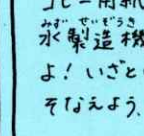 コピー用紙
みず せいぞうき
水製造機
よ！いざと
そなえよう、